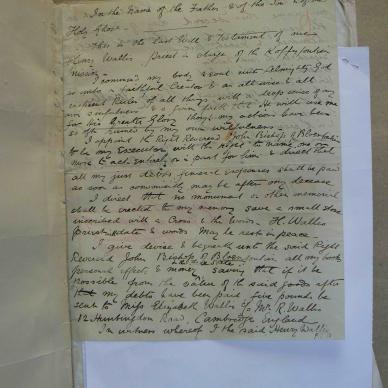 In the Name of the Father, & of the Son & of the
Holy Ghost.
This is the last Will & Testament of me
Henry Wallis Priest in charge of the Koffyfontein
Mission.
I commend my body & soul unto Almighty God
as unto a faithful Creator & an all wise & all
Ruler of all things, with a deep sense of my
own sinfulness & a firm faith that He will use me
for His Greater Glory though my actions have been
so often ruined by my own wilfulness.
I appoint the Right Reverend John Bishop of Bloemfontein
to be my Executor with the right to name
more to act entirely or in part for him & direct that
all my just debts funeral expenses shall be paid
as soon as conveniently may be after my decease
I direct that no monument or other memorial
shall be erected to my memory save a small stone
inscribed with a Cross & the Words H. Wallis
Priest & date & words May he rest in peace
I give devise & bequeath unto the said Right
Reverend John Bishop of Bloemfontein all my books
personal effects & money saving that if it be
possible from the value of the said goods after
my debts have been paid five pounds be
sent to Miss Elizabeth Wallis c/o Mr. R. Wallis
12 Huntingdon Road, Cambridge England
In witness whereof I the said Henry Wallis